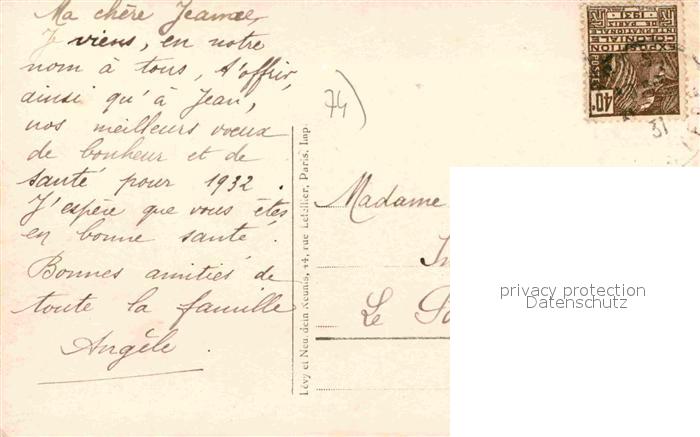 Ma chère Jeanne,
Je viens, en notre
nom à tous, t'offrir,
ainsi qu'à Jean,
nos meilleurs vœux
de bonheur et de
santé pour 1932.
J'espère que vous êtes
en bonne santé.
Bonnes amitiés de
toute la famille
Angèle.
74)
Lévy et Neurdein Réunis, 44, rue Letellier, Paris, Imp.
EXPOSITION
COLONIALE
INTERNATIONALE
DE PARIS
1931
POSTES
40c
31
Madame
Le
privacy protection
Datenschutz